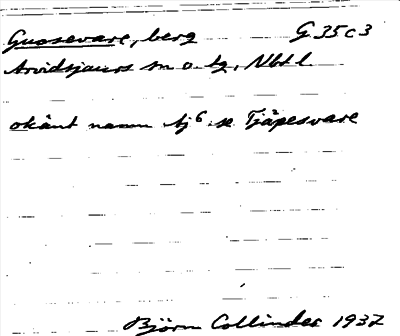 Guosevare, berg G 35 c 3
Arvidsjaurs sn o. tg, Nbt l.
okänt namn tj⁶ se Tjåpesvare
Björn Collinder 1937